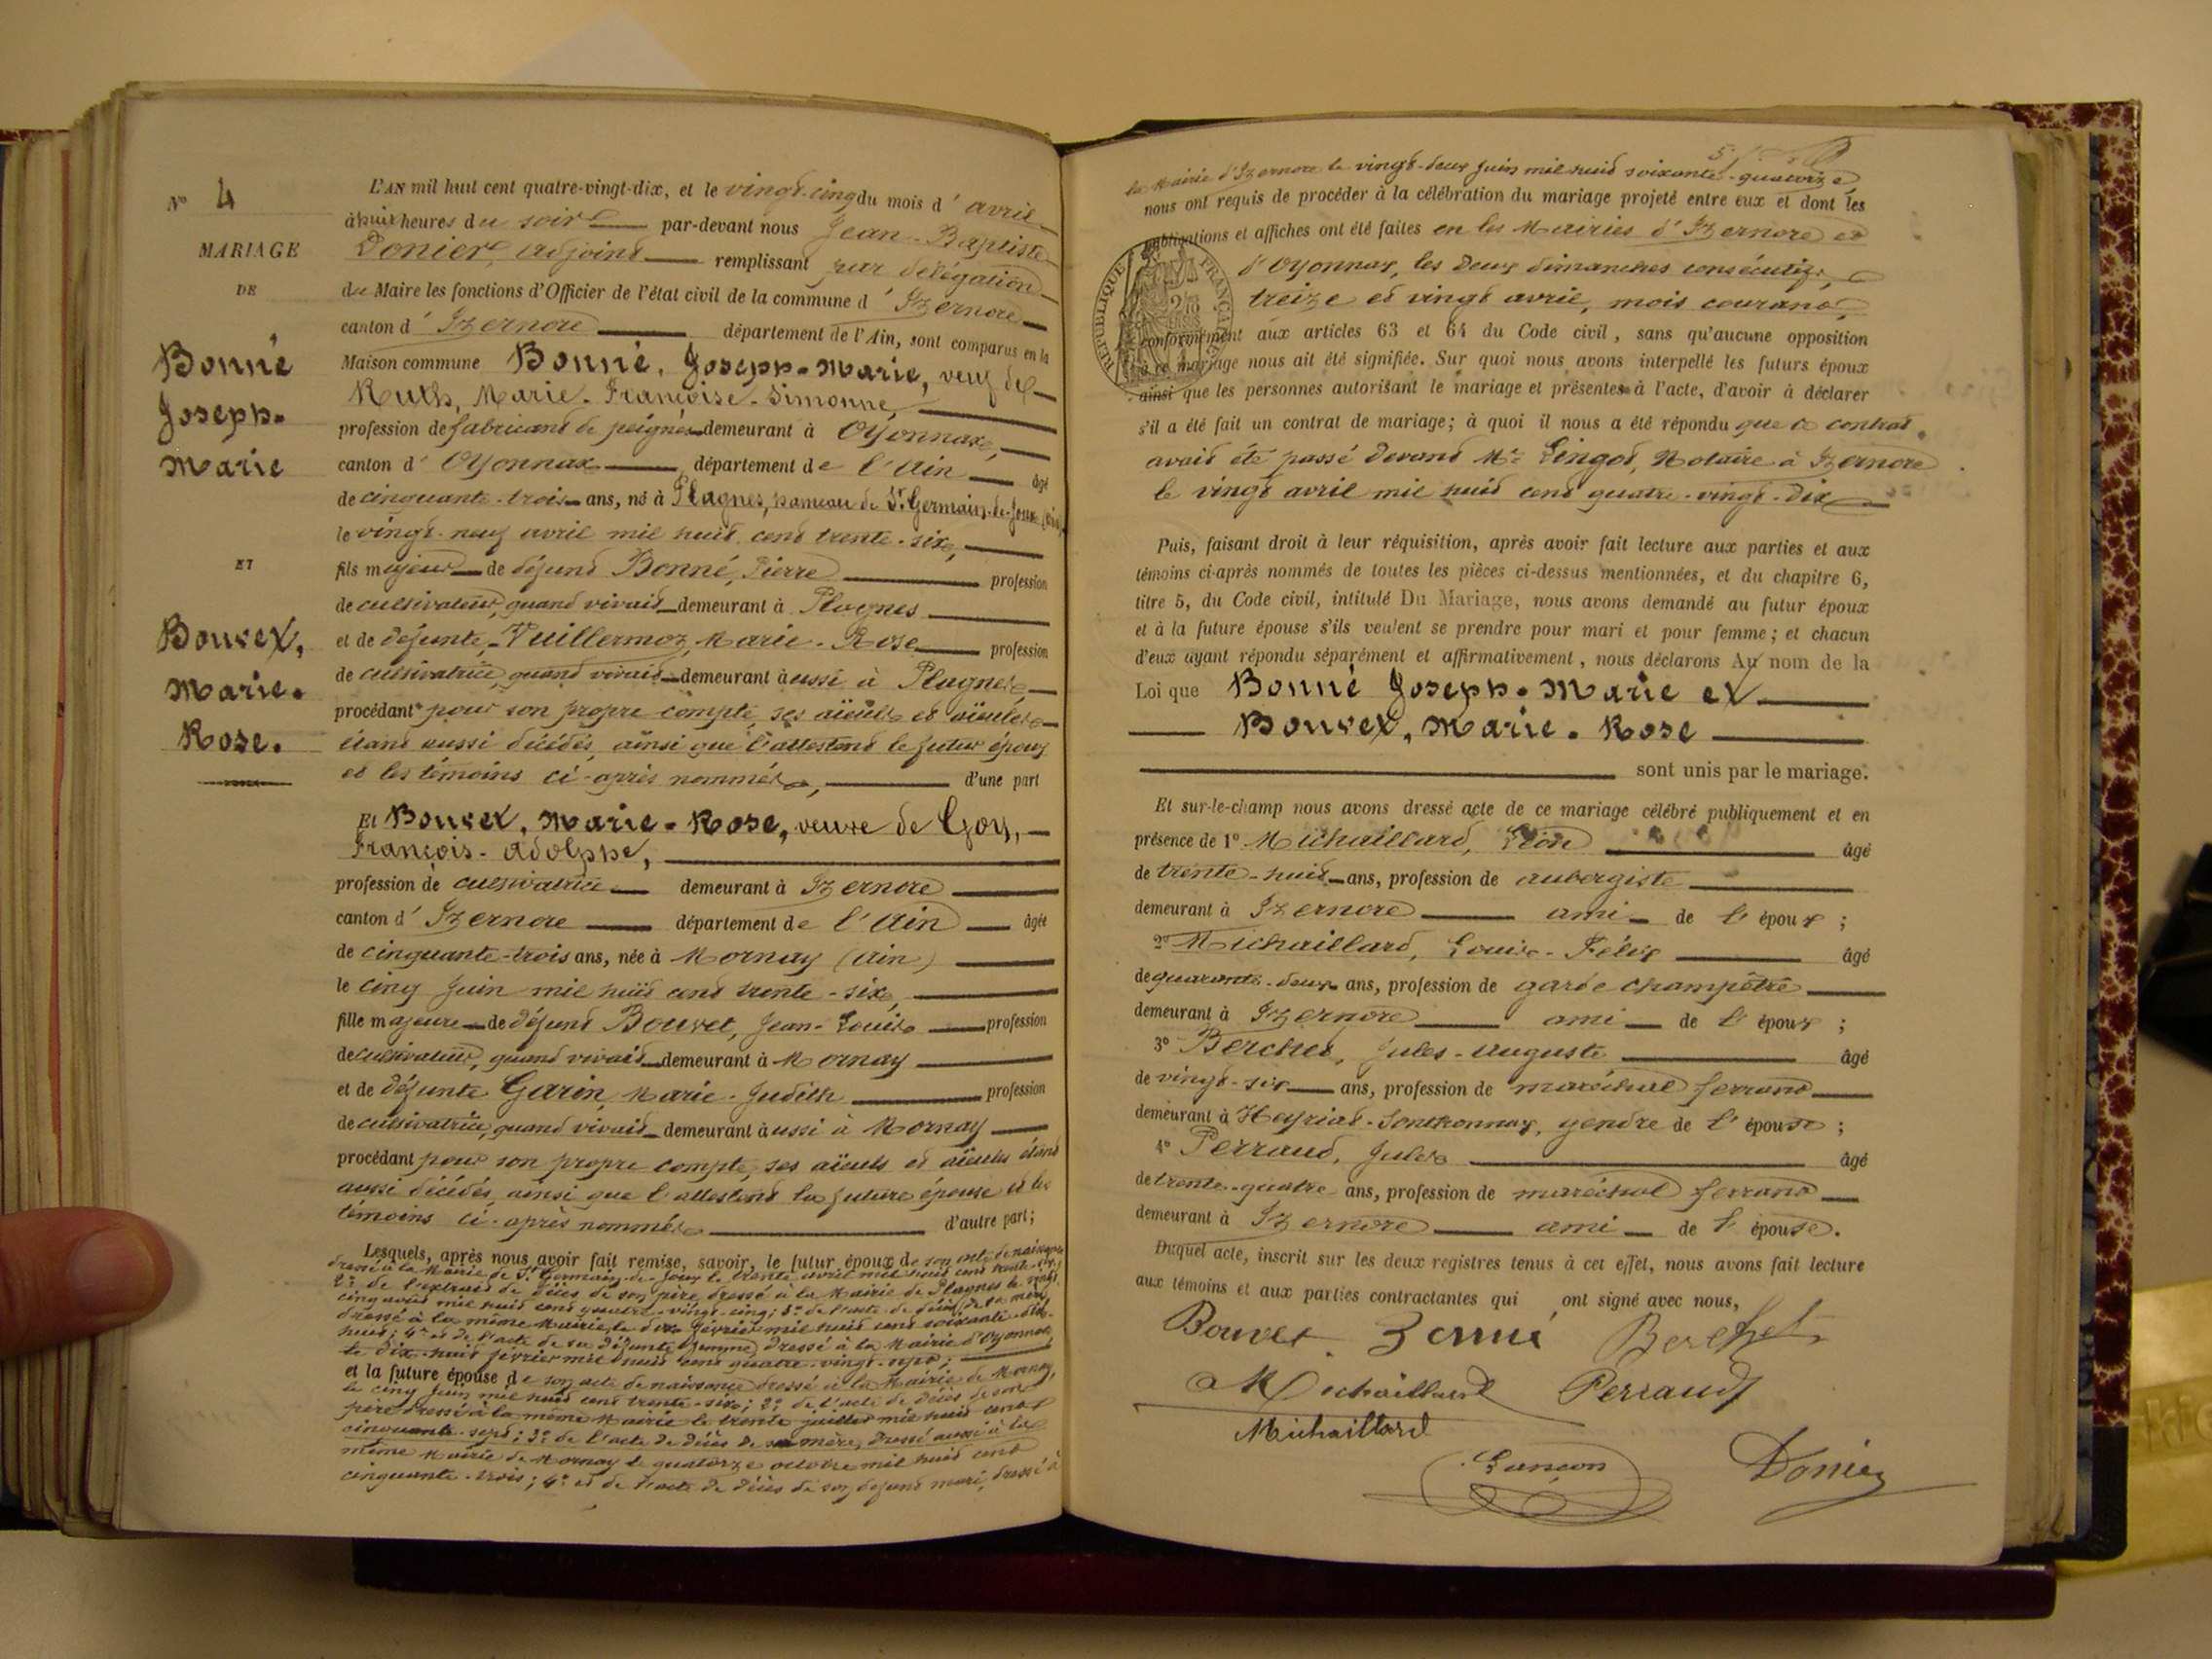 N° 4
MARIAGE
DE
Bonné
Joseph-
Marie
ET
Bouvet,
Marie-
Rose.
L'AN mil huit cent quatre-vingt-dix, et le vingt-cinq du mois d'avril
à huit heures du soir par-devant nous Jean-Baptiste
Donier, adjoint remplissant par délégation
du Maire les fonctions d'Officier de l'état civil de la commune d'Izernore
canton d'Izernore département de l'Ain, sont comparus en la
Maison commune Bonné, Joseph-Marie, veuf de
Ruth, Marie-Françoise-Simonne,
profession de fabricant de peignes demeurant à Oyonnax,
canton d'Oyonnax département de l'Ain âgé
de cinquante-trois ans, né à Plagnes, hameau de St Germain-de-Joux (Ain)
le vingt-neuf avril mil huit cent trente-six,
fils majeur de défunt Bonné, Pierre profession
de cultivateur, quand vivait demeurant à Plagnes
et de défunte, Vuillermoz, Marie-Rose profession
de cultivatrice, quand vivait demeurant aussi à Plagnes
procédant pour son propre compte, ses aïeuls et aïeules
étant aussi décédés, ainsi que l'attestent le futur époux
et les témoins ci-après nommés, d'une part
Et Bouvet, Marie-Rose, veuve de Goy,
François-Adolphe,
profession de cultivatrice demeurant à Izernore
canton d'Izernore département de l'Ain âgée
de cinquante-trois ans, née à Mornay (Ain)
le cinq juin mil huit cent trente-six,
fille majeure de défunt Bouvet, Jean-Louis profession
de cultivateur, quand vivait demeurant à Mornay
et de défunte Garin, Marie-Judith profession
de cultivatrice, quand vivait demeurant aussi à Mornay
procédant pour son propre compte, ses aïeuls et aïeules étant
aussi décédés, ainsi que l'attestent la future épouse et les
témoins ci-après nommés d'autre part;
Lesquels, après nous avoir fait remise, savoir, le futur époux de son acte de naissance
dressé à la Mairie de St Germain-de-Joux le trente avril mil huit cent trente-six;
2° de l'extrait de décès de son père, dressé à la Mairie de Plagnes le vingt-
cinq août mil huit cent quatre-vingt-cinq; 3° de l'acte de décès de sa mère,
dressé à la même Mairie, le dix février mil huit cent soixante-dix-
huit; 4° et de l'acte de sa défunte femme, dressé à la Mairie d'Oyonnax
le dix-huit février mil huit cent quatre-vingt-sept;
et la future épouse de son acte de naissance dressé à la Mairie de Mornay,
le cinq juin mil huit cent trente-six; 2° de l'acte de décès de son
père dressé à la même Mairie le trente juillet mil huit cent
cinquante-sept; 3° de l'acte de décès de sa mère, dressé aussi à la
même Mairie de Mornay le quatorze octobre mil huit cent
cinquante-trois; 4° et de l'acte de décès de son défunt mari, dressé à
la Mairie d'Izernore le vingt-deux juin mil huit soixante-quatorze,
nous ont requis de procéder à la célébration du mariage projeté entre eux et dont les
publications et affiches ont été faites en les Mairies d'Izernore et
d'Oyonnax, les deux dimanches consécutifs,
treize et vingt avril, mois courant,
RÉPUBLIQUE FRANÇAISE
conformément aux articles 63 et 64 du Code civil, sans qu'aucune opposition
à ce mariage nous ait été signifiée. Sur quoi nous avons interpellé les futurs époux
ainsi que les personnes autorisant le mariage et présentes à l'acte, d'avoir à déclarer
s'il a été fait un contrat de mariage; à quoi il nous a été répondu que ce contrat
avait été passé devant Me Lingot, Notaire à Izernore
le vingt avril mil huit cent quatre-vingt-dix
Puis, faisant droit à leur réquisition, après avoir fait lecture aux parties et aux
témoins ci-après nommés de toutes les pièces ci-dessus mentionnées, et du chapitre 6,
titre 5, du Code civil, intitulé Du Mariage, nous avons demandé au futur époux
et à la future épouse s'ils veulent se prendre pour mari et pour femme; et chacun
d'eux ayant répondu séparément et affirmativement, nous déclarons Au nom de la
Loi que Bonné Joseph-Marie et
Bouvet, Marie-Rose
sont unis par le mariage.
Et sur-le-champ nous avons dressé acte de ce mariage célébré publiquement et en
présence de 1° Michaillard, Léon âgé
de trente-huit ans, profession de aubergiste
demeurant à Izernore ami de l'époux;
2° Michaillard, Louis-Félix âgé
de quarante-deux ans, profession de garde champêtre
demeurant à Izernore ami de l'époux;
3° Berchet, Jules-Auguste âgé
de vingt-six ans, profession de maréchal ferrant
demeurant à Heyriat-Sonthonnax, gendre de l'épouse;
4° Perraud, Jules âgé
de trente-quatre ans, profession de maréchal ferrant
demeurant à Izernore ami de l'épouse.
Duquel acte, inscrit sur les deux registres tenus à cet effet, nous avons fait lecture
aux témoins et aux parties contractantes qui ont signé avec nous,
Bouvet Bonné Berchet
Michaillard Perraud
Michaillard
Lançon Donier